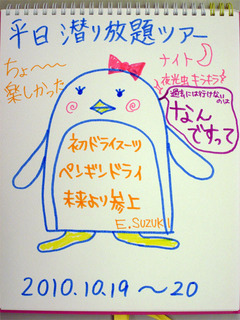 平日 潜り放題ツアー
ちょ〜〜〜
楽しかった
ナイト
夜光虫キラキラ
過去には行けない
のは
なん
ですって
初ドライスーツ
ペンギンドライ
未来より参上
E.SUZUKI
2010.10.19 〜20